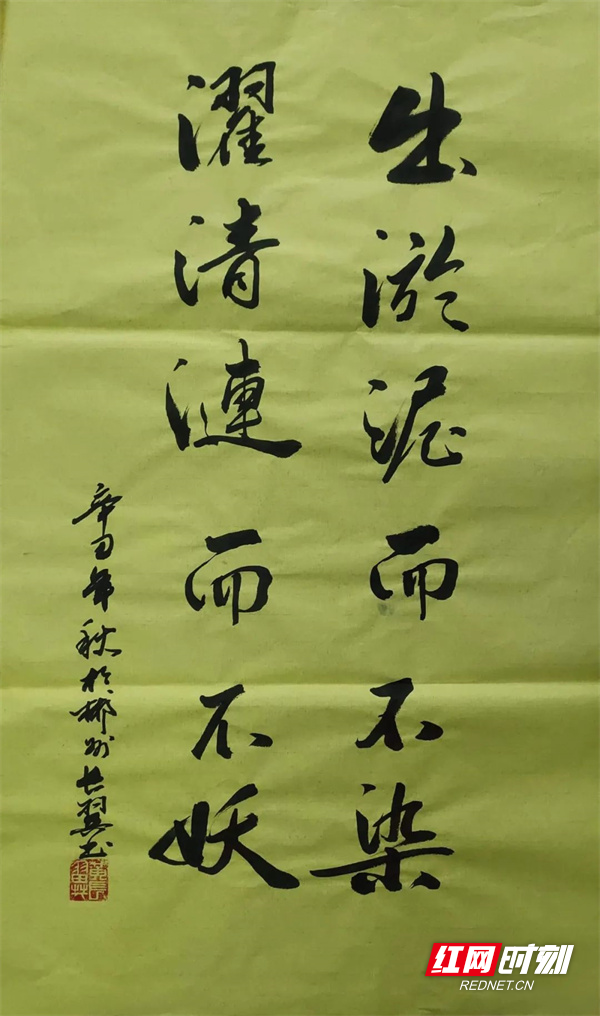 出淤泥而不染
濯清漣而不妖
辛丑年秋於郴州長翼書
红网时刻
REDNET.CN